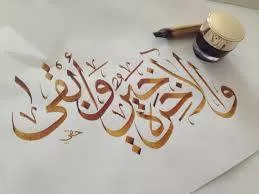 وَالآخِرَةُ خَيْرٌ وَأَبْقَى
حقي